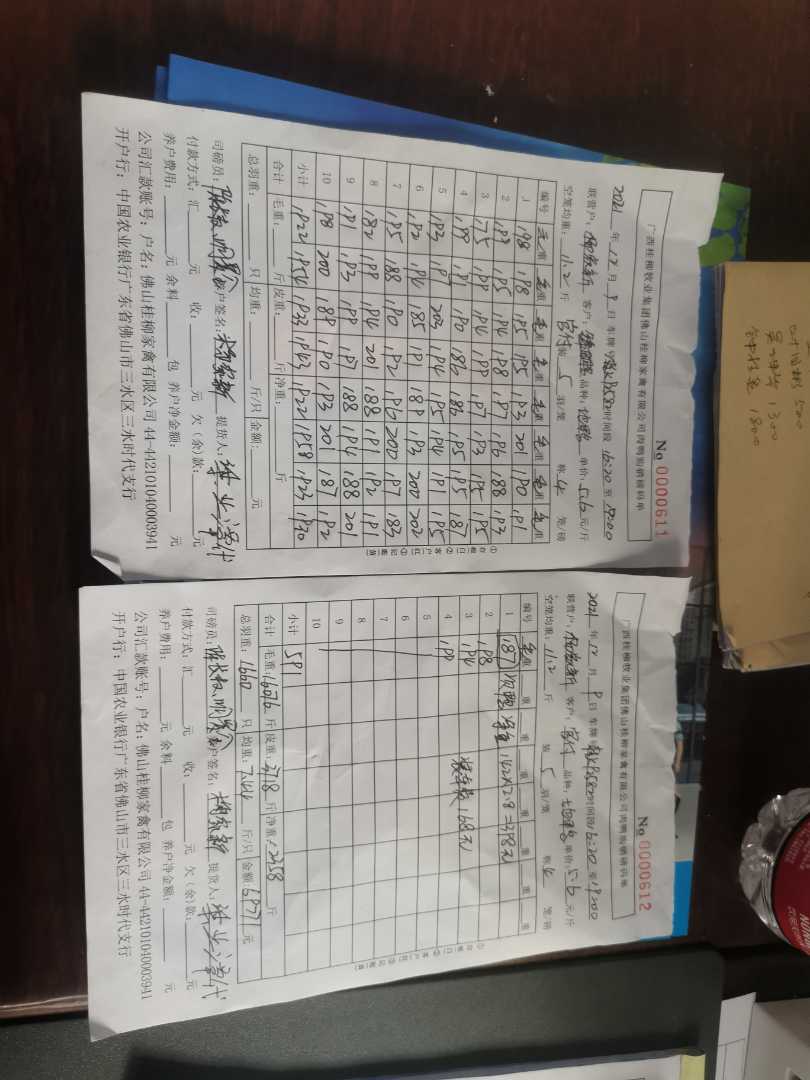 广西桂柳牧业集团佛山桂柳家禽有限公司肉鸭购销磅码单
No 0000611
2021 年 12 月 9 日 车牌号 时间段 16:20 至 19:00
联营户: 客户: 品种: 单价: 5.6 元/斤
空笼均重: 11.2 斤 装 5 羽/笼 称 4 笼/磅
编号 毛重 毛重 毛重 毛重 毛重 毛重 毛重
1 198 198 195 195 193 201 190 191
2 189 195 194 188 197 196 188 193
3 175 199 194 199 197 193 195 195
4 199 191 190 186 186 195 195 187
5 193 197 203 194 195 194 191 195
6 192 194 185 191 189 193 200 202
7 195 188 190 192 196 200 197 183
8 182 199 194 201 188 191 192 191
9 191 193 199 197 188 194 188 201
10 198 200 189 190 193 201 187 192
小计 1922 1954 1933 1943 1922 1958 1923 1930
合计 毛重: 斤 皮重: 斤 净重: 斤
总羽重: 只 均重: 斤/只 金额: 元
司磅员: 养户签名: 提货人:
付款方式: 汇 元 收: 元 欠(余)款: 元
养户费用: 元 余料 包 养户净金额: 元
公司汇款账号: 户名: 佛山桂柳家禽有限公司 44-442101040003941
开户行: 中国农业银行广东省佛山市三水区三水时代支行
①存根(白) ②客户(红) ③记账(黄)
广西桂柳牧业集团佛山桂柳家禽有限公司肉鸭购销磅码单
No 0000612
2021 年 12 月 9 日 车牌号 时间段 16:20 至 19:00
联营户: 客户: 品种: 单价: 5.6 元/斤
空笼均重: 11.2 斤 装 5 羽/笼 称 4 笼/磅
编号 毛重 重 重 重 重 重 重
1 187 142X2.8=398元
2 198
3 194 装车费 168元
4 199
5
6
7
8
9
10
小计 591
合计 毛重: 16076 斤 皮重: 3718 斤 净重: 12358 斤
总羽重: 1660 只 均重: 7.44 斤/只 金额: 69771 元
司磅员: 养户签名: 提货人:
付款方式: 汇 元 收: 元 欠(余)款: 元
养户费用: 元 余料 包 养户净金额: 元
公司汇款账号: 户名: 佛山桂柳家禽有限公司 44-442101040003941
开户行: 中国农业银行广东省佛山市三水区三水时代支行
500
1300
1800